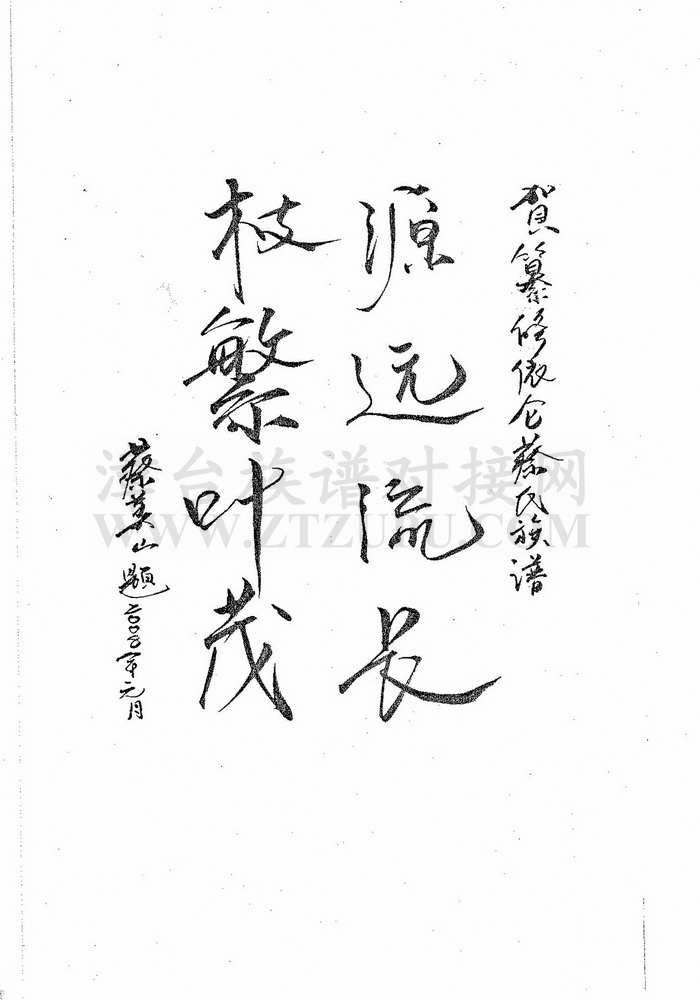 贺纂修依仑蔡氏族谱
源远流长
枝繁叶茂
蔡英山题 二〇〇三年元月
漳台族谱对接网
WWW.ZTZUPU.COM